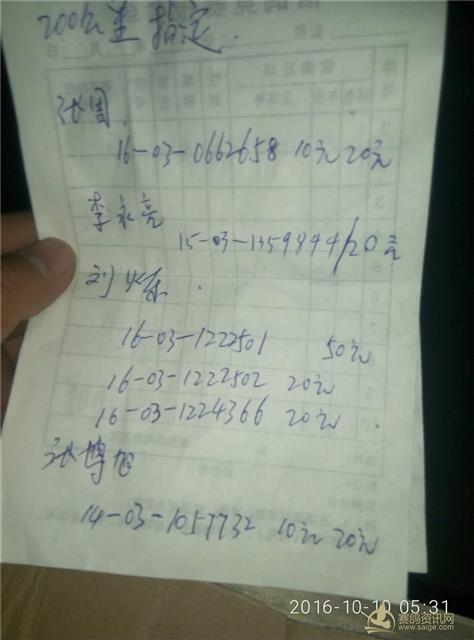 200公里指定.
张周.
16-03-0662658 10元 20元
李永亮
15-03-1359844/20元
刘
16-03-1222501 50元
16-03-1222502 20元
16-03-1224366 20元
张博旭
14-03-1057732 10元 20元
2016-10-10 05:31
赛鸽资讯网
www.saige.com